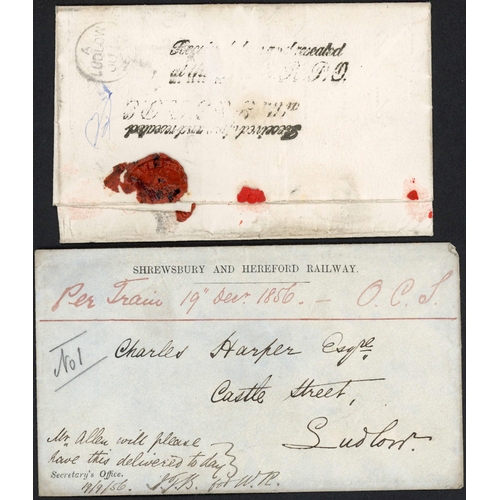 A
LUDLOW
Received and resealed
at the R.P.O.
Received and resealed
at the R.P.O.
SHREWSBURY AND HEREFORD RAILWAY.
Per Train 19" Decr. 1856. - O.C.S.
No 1
Charles Harper Esqre
Castle Street,
Ludlow.
Mr Allen will please
have this delivered to day
Secretary's Office.
for W.R.